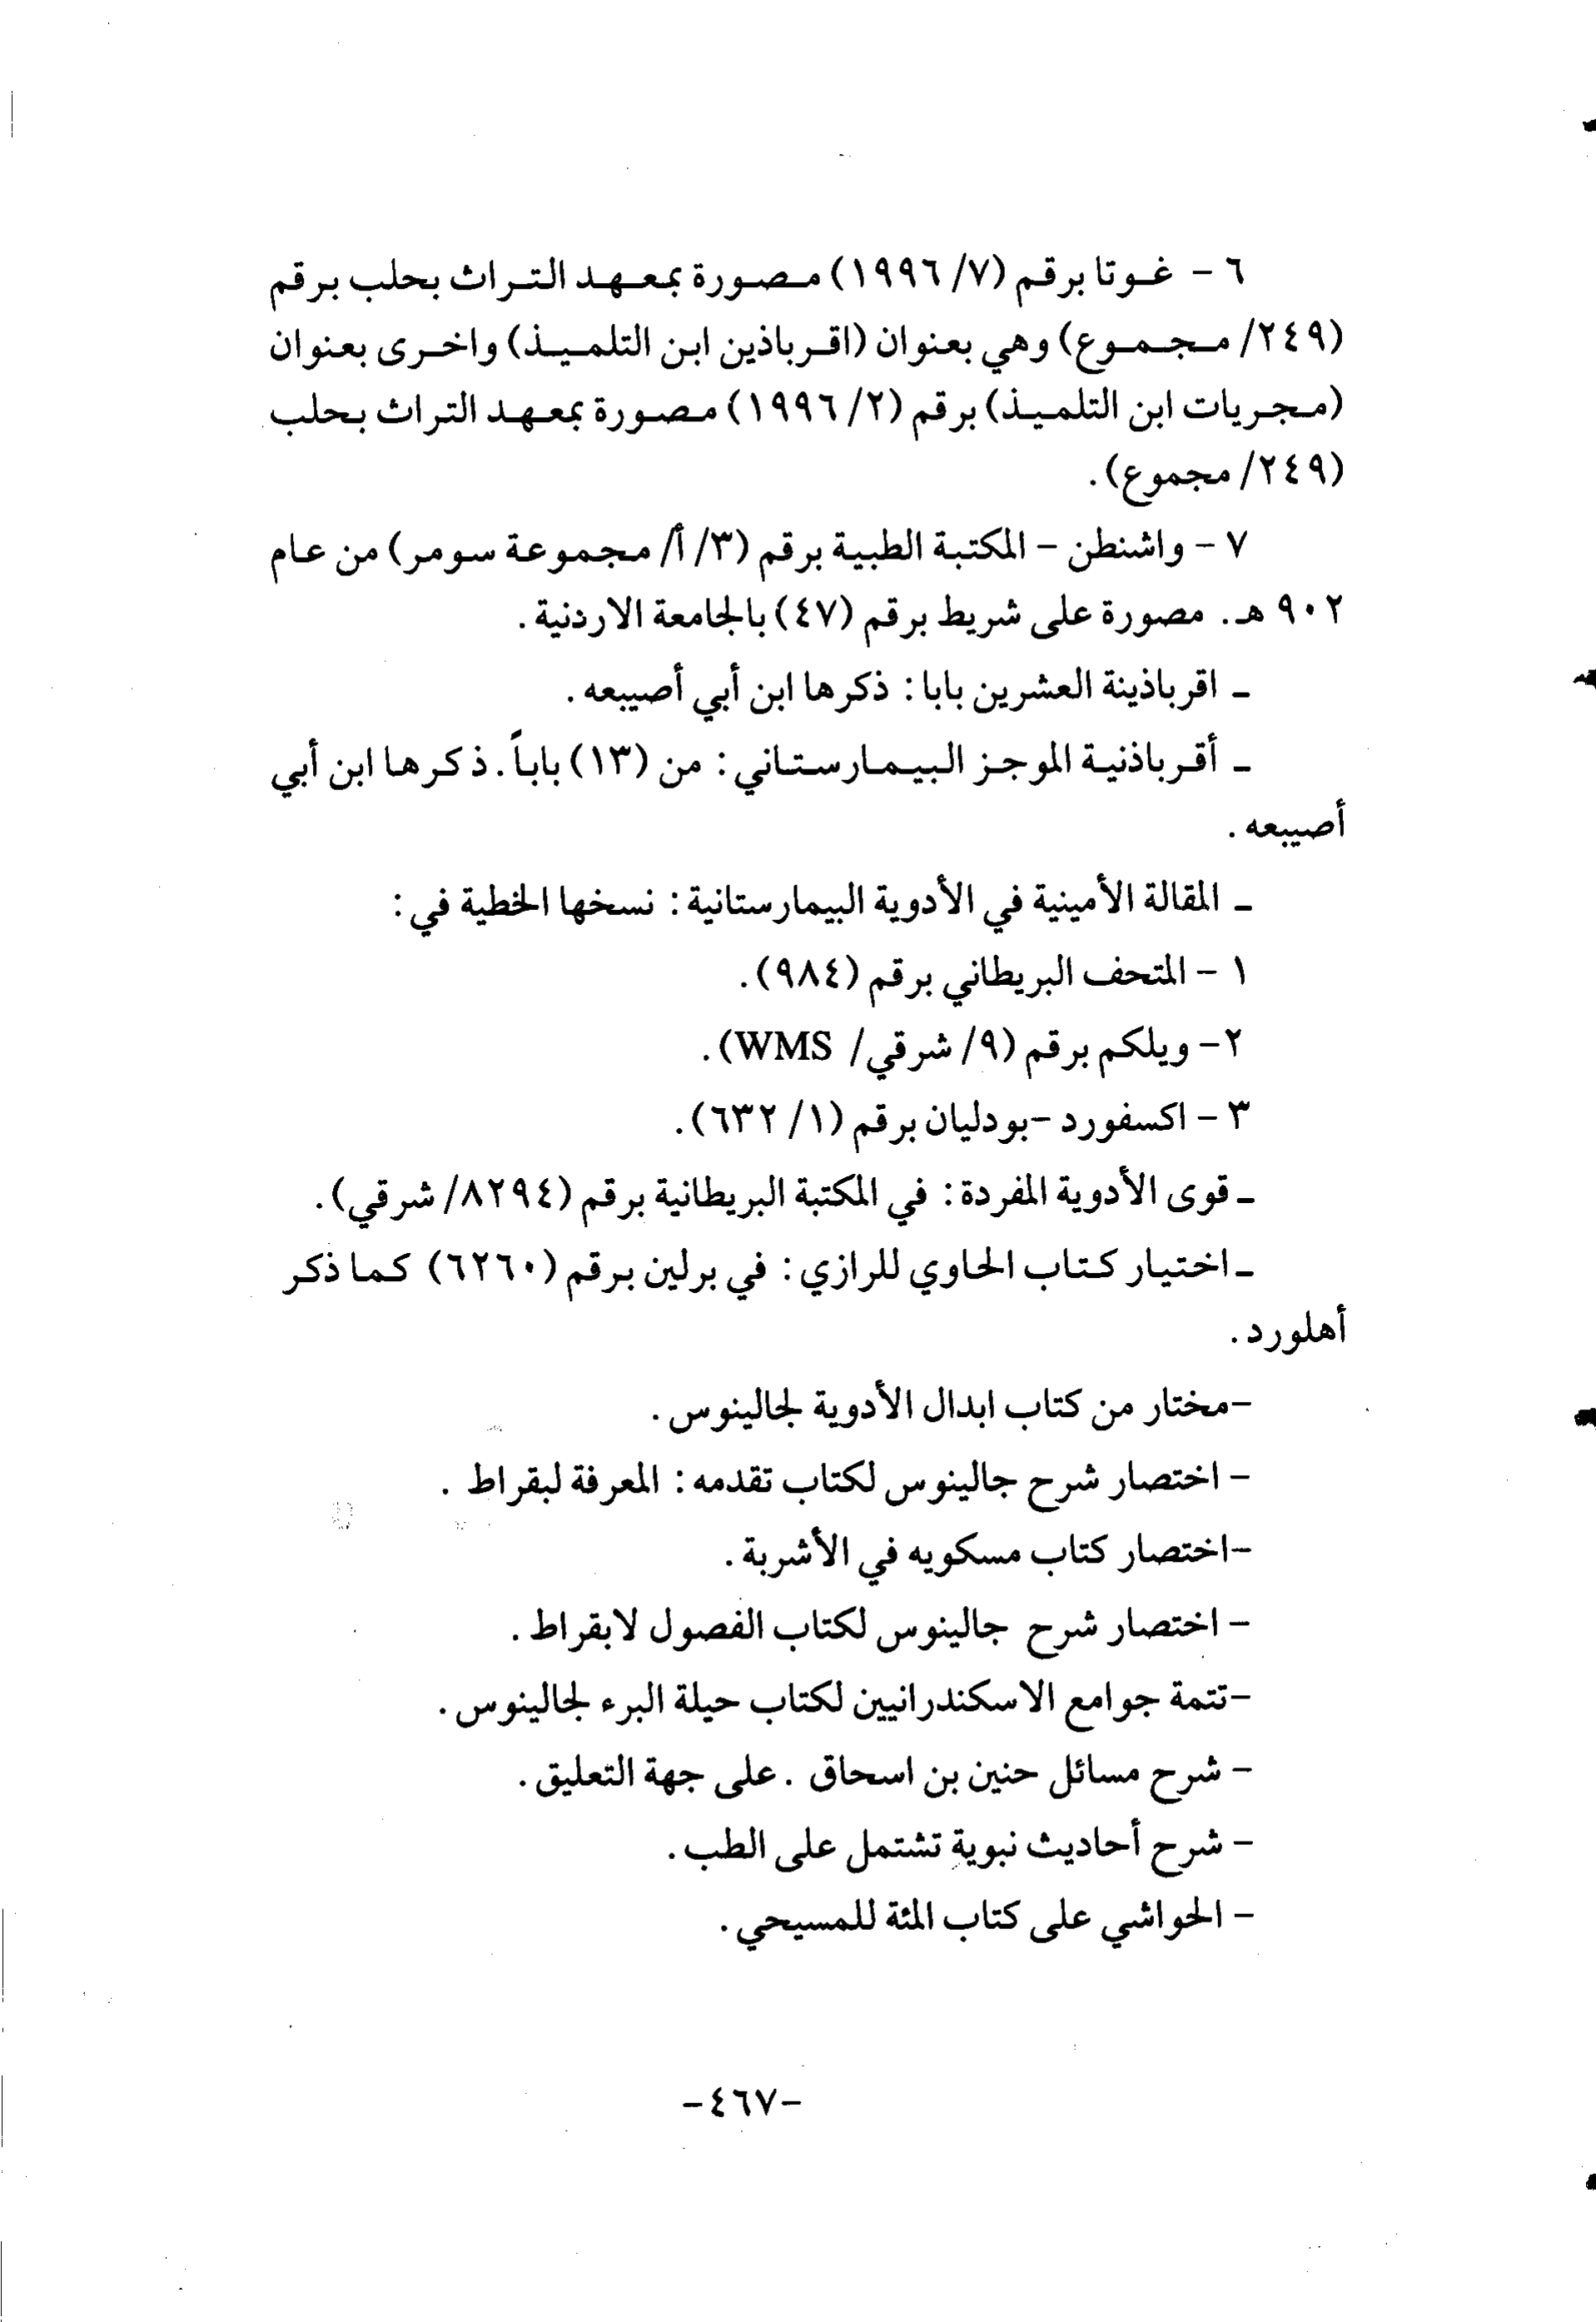 ٦ - غوتا برقم (٧/ ١٩٩٦) مصورة بمعهد التراث بحلب برقم
(٢٤٩/ مجموع) وهي بعنوان (اقرباذين ابن التلميذ) واخرى بعنوان
(مجريات ابن التلميذ) برقم (٢/ ١٩٩٦) مصورة بمعهد التراث بحلب
(٢٤٩/ مجموع).
٧ - واشنطن - المكتبة الطبية برقم (٣/ أ/ مجموعة سومر) من عام
٩٠٢ هـ. مصورة على شريط برقم (٤٧) بالجامعة الاردنية.
ـ اقرباذينة العشرين بابا: ذكرها ابن أبي أصيبعه.
ـ أقرباذنية الموجز البيمارستاني: من (١٣) باباً. ذكرها ابن أبي
أصيبعه.
ـ المقالة الأمينية في الأدوية البيمارستانية: نسخها الخطية في:
١ - المتحف البريطاني برقم (٩٨٤).
٢- ويلكم برقم (٩/ شرقي/ WMS).
٣ - اكسفورد -بودليان برقم (١/ ٦٣٢).
ـ قوى الأدوية المفردة: في المكتبة البريطانية برقم (٨٢٩٤/ شرقي).
ـ اختيار كتاب الحاوي للرازي: في برلين برقم (٦٢٦٠) كما ذكر
أهلورد.
-مختار من كتاب ابدال الأدوية لجالينوس.
- اختصار شرح جالينوس لكتاب تقدمه: المعرفة لبقراط .
-اختصار كتاب مسكويه في الأشربة.
- اختصار شرح جالينوس لكتاب الفصول لابقراط.
-تتمة جوامع الاسكندرانيين لكتاب حيلة البرء لجالينوس.
- شرح مسائل حنين بن اسحاق . على جهة التعليق.
- شرح أحاديث نبوية تشتمل على الطب.
- الحواشي على كتاب المئة للمسيحي.
-٤٦٧-